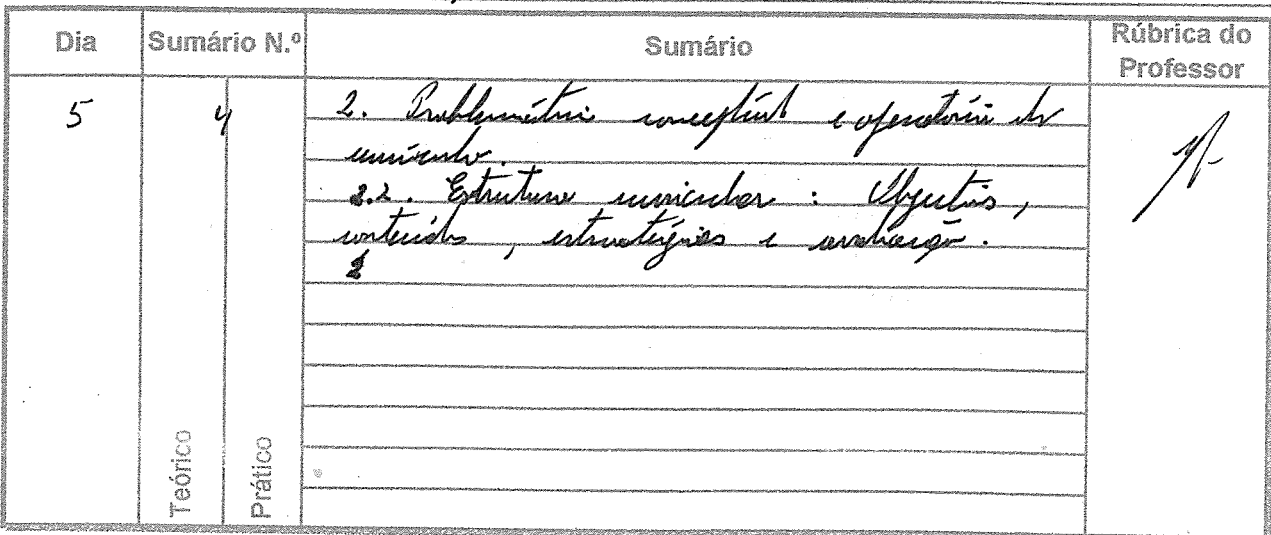 Dia Sumário N.º Sumário Rúbrica do Professor
5 4 2. Problemática conceptual e operatória do
currículo.
2.2. Estrutura curricular : Objectivos,
conteúdos, estratégias e avaliação.
Teórico Prático